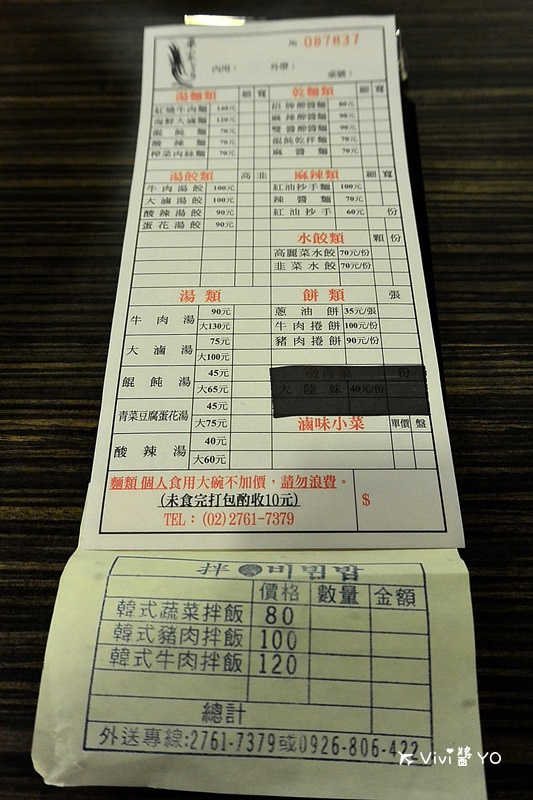 № 087837
內用： 外帶： 桌號：
湯麵類 細 寬
紅燒牛肉麵 140元
海鮮大滷麵 120元
餛飩麵 70元
酸辣麵 70元
榨菜肉絲麵 70元
乾麵類 細 寬
招牌醡醬麵 80元
麻辣醡醬麵 90元
雙醬醡醬麵 90元
餛飩乾拌麵 70元
麻醬麵 70元
湯餃類 高 韭
牛肉湯餃 100元
大滷湯餃 100元
酸辣湯餃 90元
蛋花湯餃 90元
麻辣類 細 寬
紅油抄手麵 100元
辣醬麵 70元
紅油抄手 60元 份
水餃類 顆 份
高麗菜水餃 70元/份
韭菜水餃 70元/份
湯類
牛肉湯 90元
大130元
大滷湯 75元
大100元
餛飩湯 45元
大65元
青菜豆腐蛋花湯 45元
大75元
酸辣湯 40元
大60元
餅類 張
蔥油餅 35元/張
牛肉捲餅 100元/份
豬肉捲餅 90元/份
份
大陸妹 40元/份
滷味小菜 單價 盤
麵類個人食用大碗不加價，請勿浪費。
(未食完打包酌收10元)
TEL：(02)2761-7379
$
拌 비빔밥
價格 數量 金額
韓式蔬菜拌飯 80
韓式豬肉拌飯 100
韓式牛肉拌飯 120
總計
外送專線:2761-7379或0926-806-422
Vivi醬YO